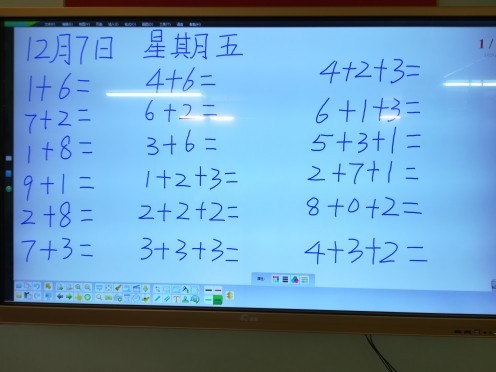 12月7日 星期五
1+6= 4+6= 4+2+3=
7+2= 6+2= 6+1+3=
1+8= 3+6= 5+3+1=
9+1= 1+2+3= 2+7+1=
2+8= 2+2+2= 8+0+2=
7+3= 3+3+3= 4+3+2=